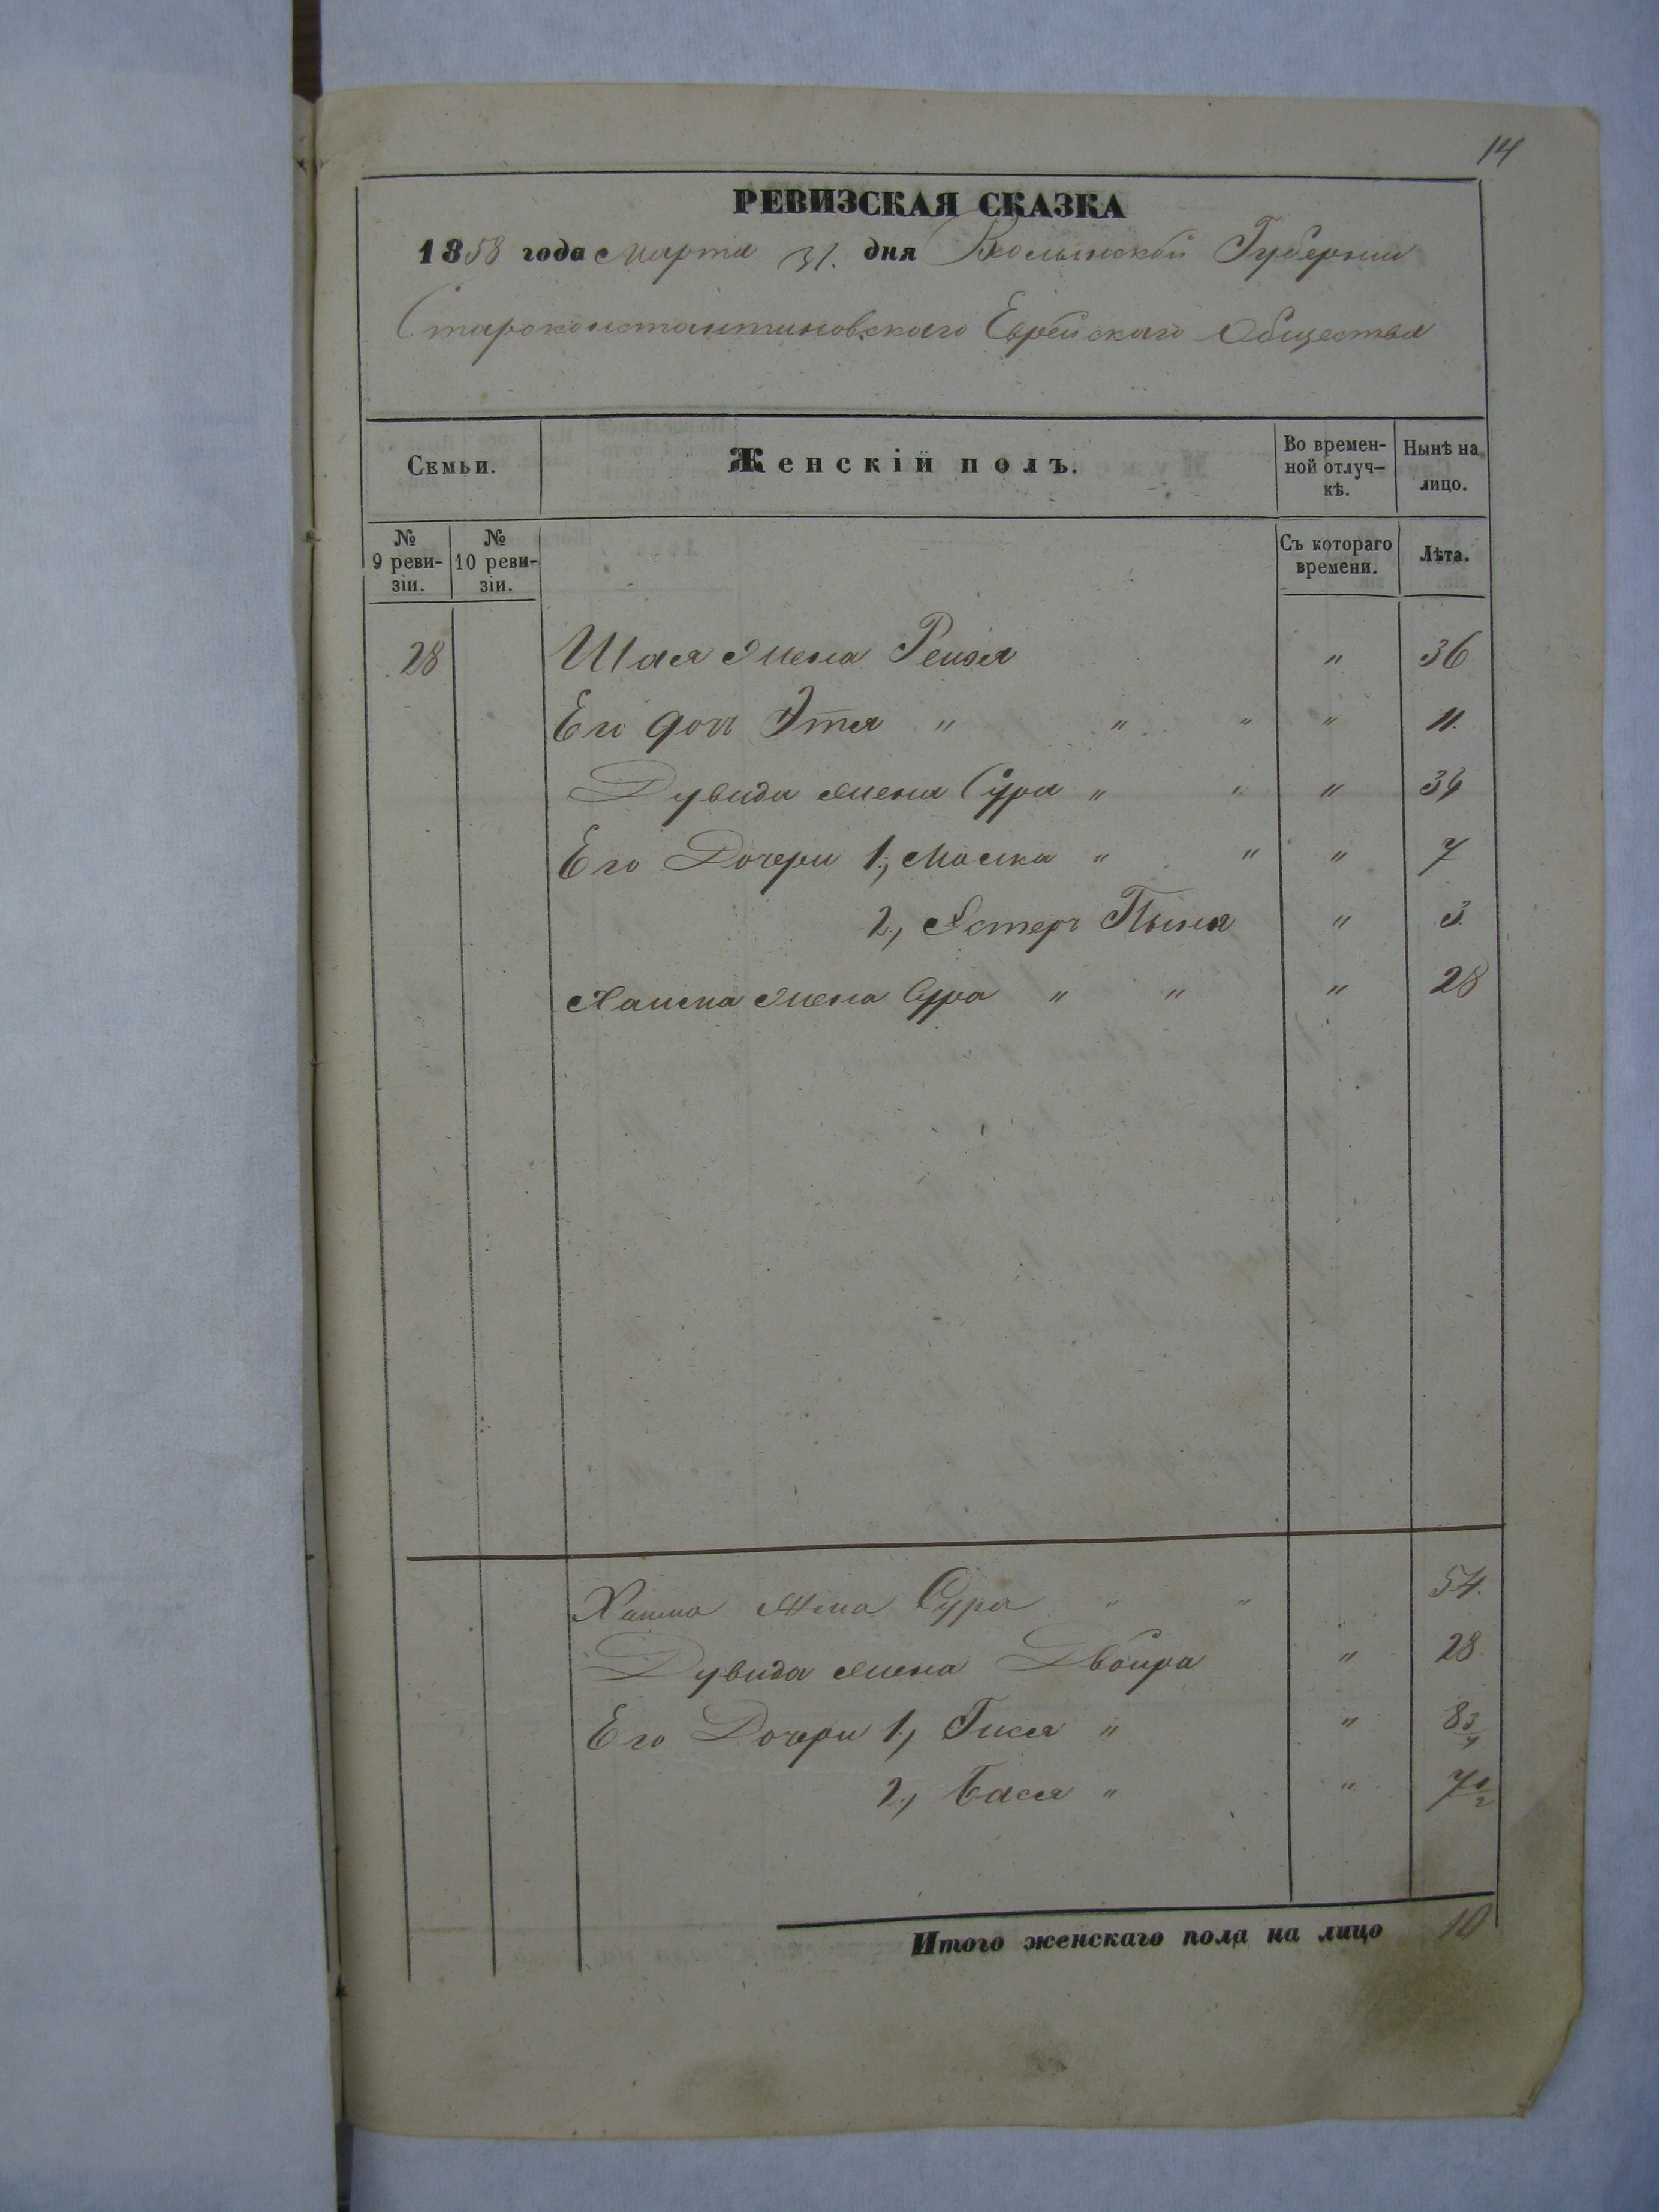 14
РЕВИЗСКАЯ СКАЗКА
1858 года Марта 31. дня Волынской Губернии
Староконстантиновскаго Еврейскаго Общества
Семьи. Женскій полъ. Во времен-ной отлуч-кѣ. Нынѣ на лицо.
№ 9 реви-зіи. № 10 реви-зіи. Съ котораго времени. Лѣта.
28 Шая жена Рейзя " 36
Его дочь Этя " " " " 11.
Дувида жена Сура " " " 34
Его Дочери 1., Малка " " " 7
2., Естеръ " 3.
жена Сура " " " 28
жена Сура " " 54.
Дувида жена Двойра " 28
Его Дочери 1., Гися " " 8 3/4
2., Бася " " 7 1/2
Итого женскаго пола на лицо 10